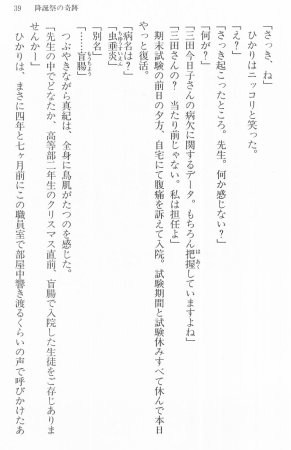 39　降誕祭の奇跡
「さっき、ね」
ひかりはニッコリと笑った。
「え？」
「さっき起こったところ。先生。何か感じない？」
「何が？」
「三田今日子さんの病欠に関するデータ。もちろん把握していますよね」
「三田さんの？　当たり前じゃない。私は担任よ」
期末試験の前日の夕方、自宅にて腹痛を訴えて入院。試験期間と試験休みすべて休んで本日
やっと復活。
「病名は？」
「虫垂炎」
「別名」
「……盲腸」
つぶやきながら真紀は、全身に鳥肌がたつのを感じた。
「先生の中でどなたか、高等部二年生のクリスマス直前、盲腸で入院した生徒をご存じありま
せんかー」
ひかりは、まさに四年と七ヶ月前にこの職員室で部屋中響き渡るくらいの声で呼びかけたあ